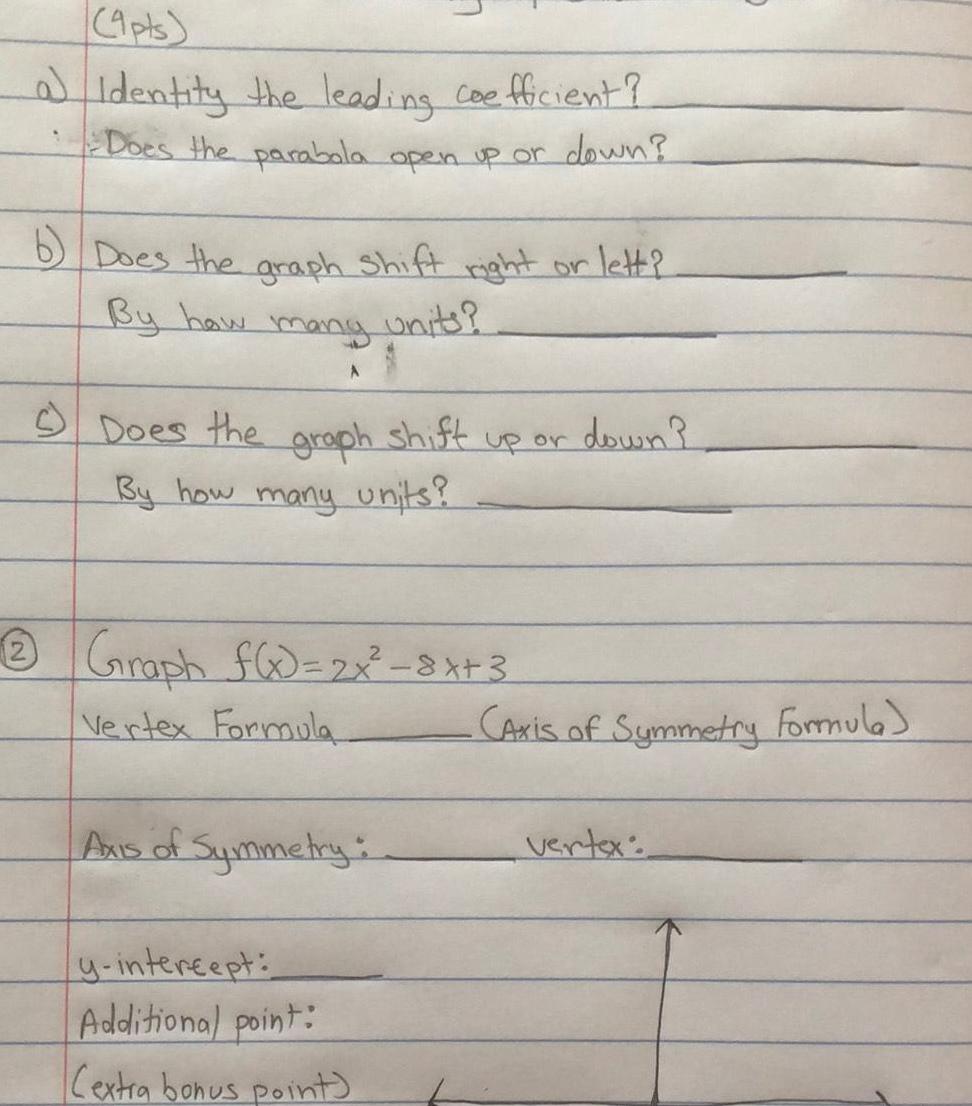 (4pts)
a) Identity the leading coefficient?
Does the parabola open up or down?
b) Does the graph shift right or left?
By how many units?
c) Does the graph shift up or down?
By how many units?
② Graph f(x)=2x²-8x+3
Vertex Formula (Axis of Symmetry Formula)
Axis of Symmetry: vertex:
y-intercept:
Additional point:
(extra bonus point)